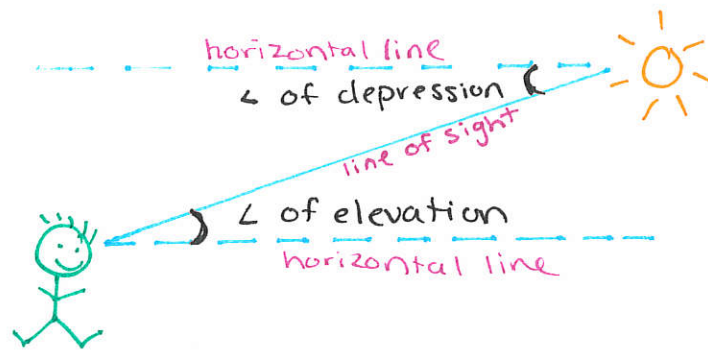 horizontal line
∠ of depression
line of sight
∠ of elevation
horizontal line